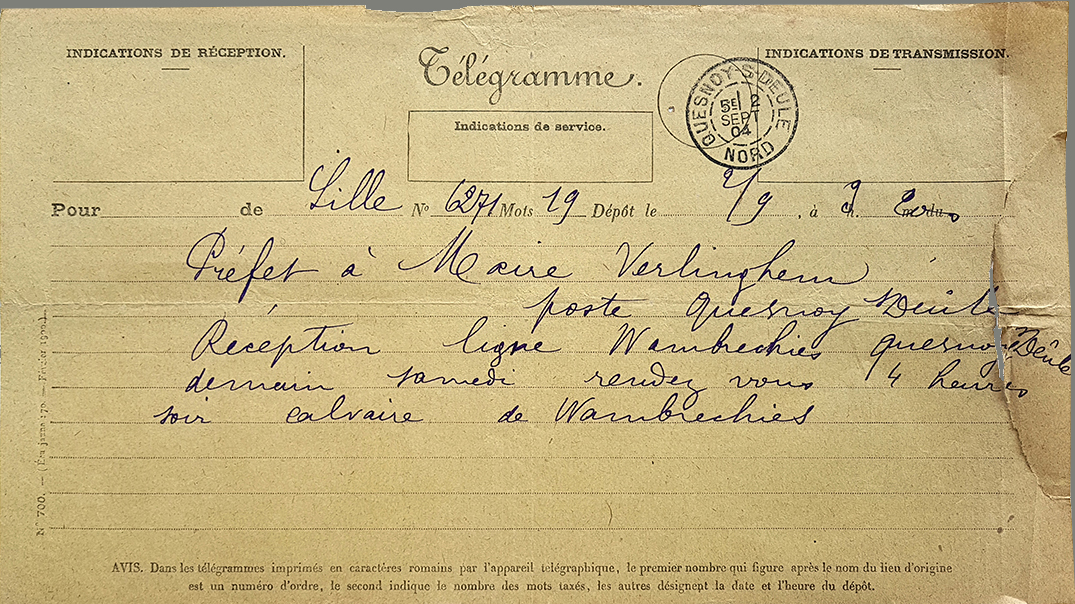 INDICATIONS DE RÉCEPTION.
Télégramme.
INDICATIONS DE TRANSMISSION.
Indications de service.
QUESNOY-S-DEULE
5E 2
SEPT
04
NORD
Pour de Lille N° 6271 Mots 19 Dépôt le 2/9, à 9 h.
Préfet à Maire Verlinghem
poste Quesnoy s Deûle
Réception ligne Wambrechies Quesnoy s Deûle
demain samedi rendez vous 4 heures
soir calvaire de Wambrechies
N° 700. — (Ém jaune 170. — Février 1900.)
AVIS. Dans les télégrammes imprimés en caractères romains par l'appareil télégraphique, le premier nombre qui figure après le nom du lieu d'origine
est un numéro d'ordre, le second indique le nombre des mots taxés, les autres désignent la date et l'heure du dépôt.